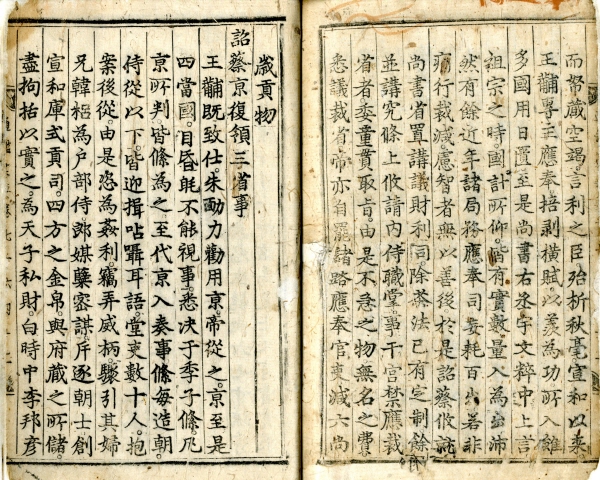 而帑藏空竭言利之臣殆析秋毫宣和以来
王黼專主應奉掊剥橫賦以羡為功所入雖
多國用日匱至是尚書右丞宇文粹中上言
祖宗之時國計所仰皆有實數量入為出沛
然有餘近年諸局務應奉司妄耗百出若非
痛行裁減慮智者無以善後於是詔蔡攸就
尚書省置講議財利司除茶法已有定制餘
並講究條上攸請內侍職掌事干宮禁應裁
省者委童貫取旨由是不急之物無名之費
悉議裁省帝亦自罷諸路應奉官吏減六尚
歲貢物
詔蔡京復領三省事
王黼既致仕。朱勔力勸用京。帝從之。京至是
四當國。目昏眊不能視事。悉決于季子絛。凡
京所判。皆絛為之。至代京入奏事。絛每造朝。
侍從以下。皆迎揖呫囁耳語。堂吏數十人。抱
案後從。由是恣為姦利。竊弄威柄。驟引其婦
兄韓梠為戶部侍郎。媒蘖密謀。斥逐朝士。創
宣和庫式貢司。四方之金帛。與府藏之所儲。
盡拘括以實之。為天子私財。白時中李邦彦